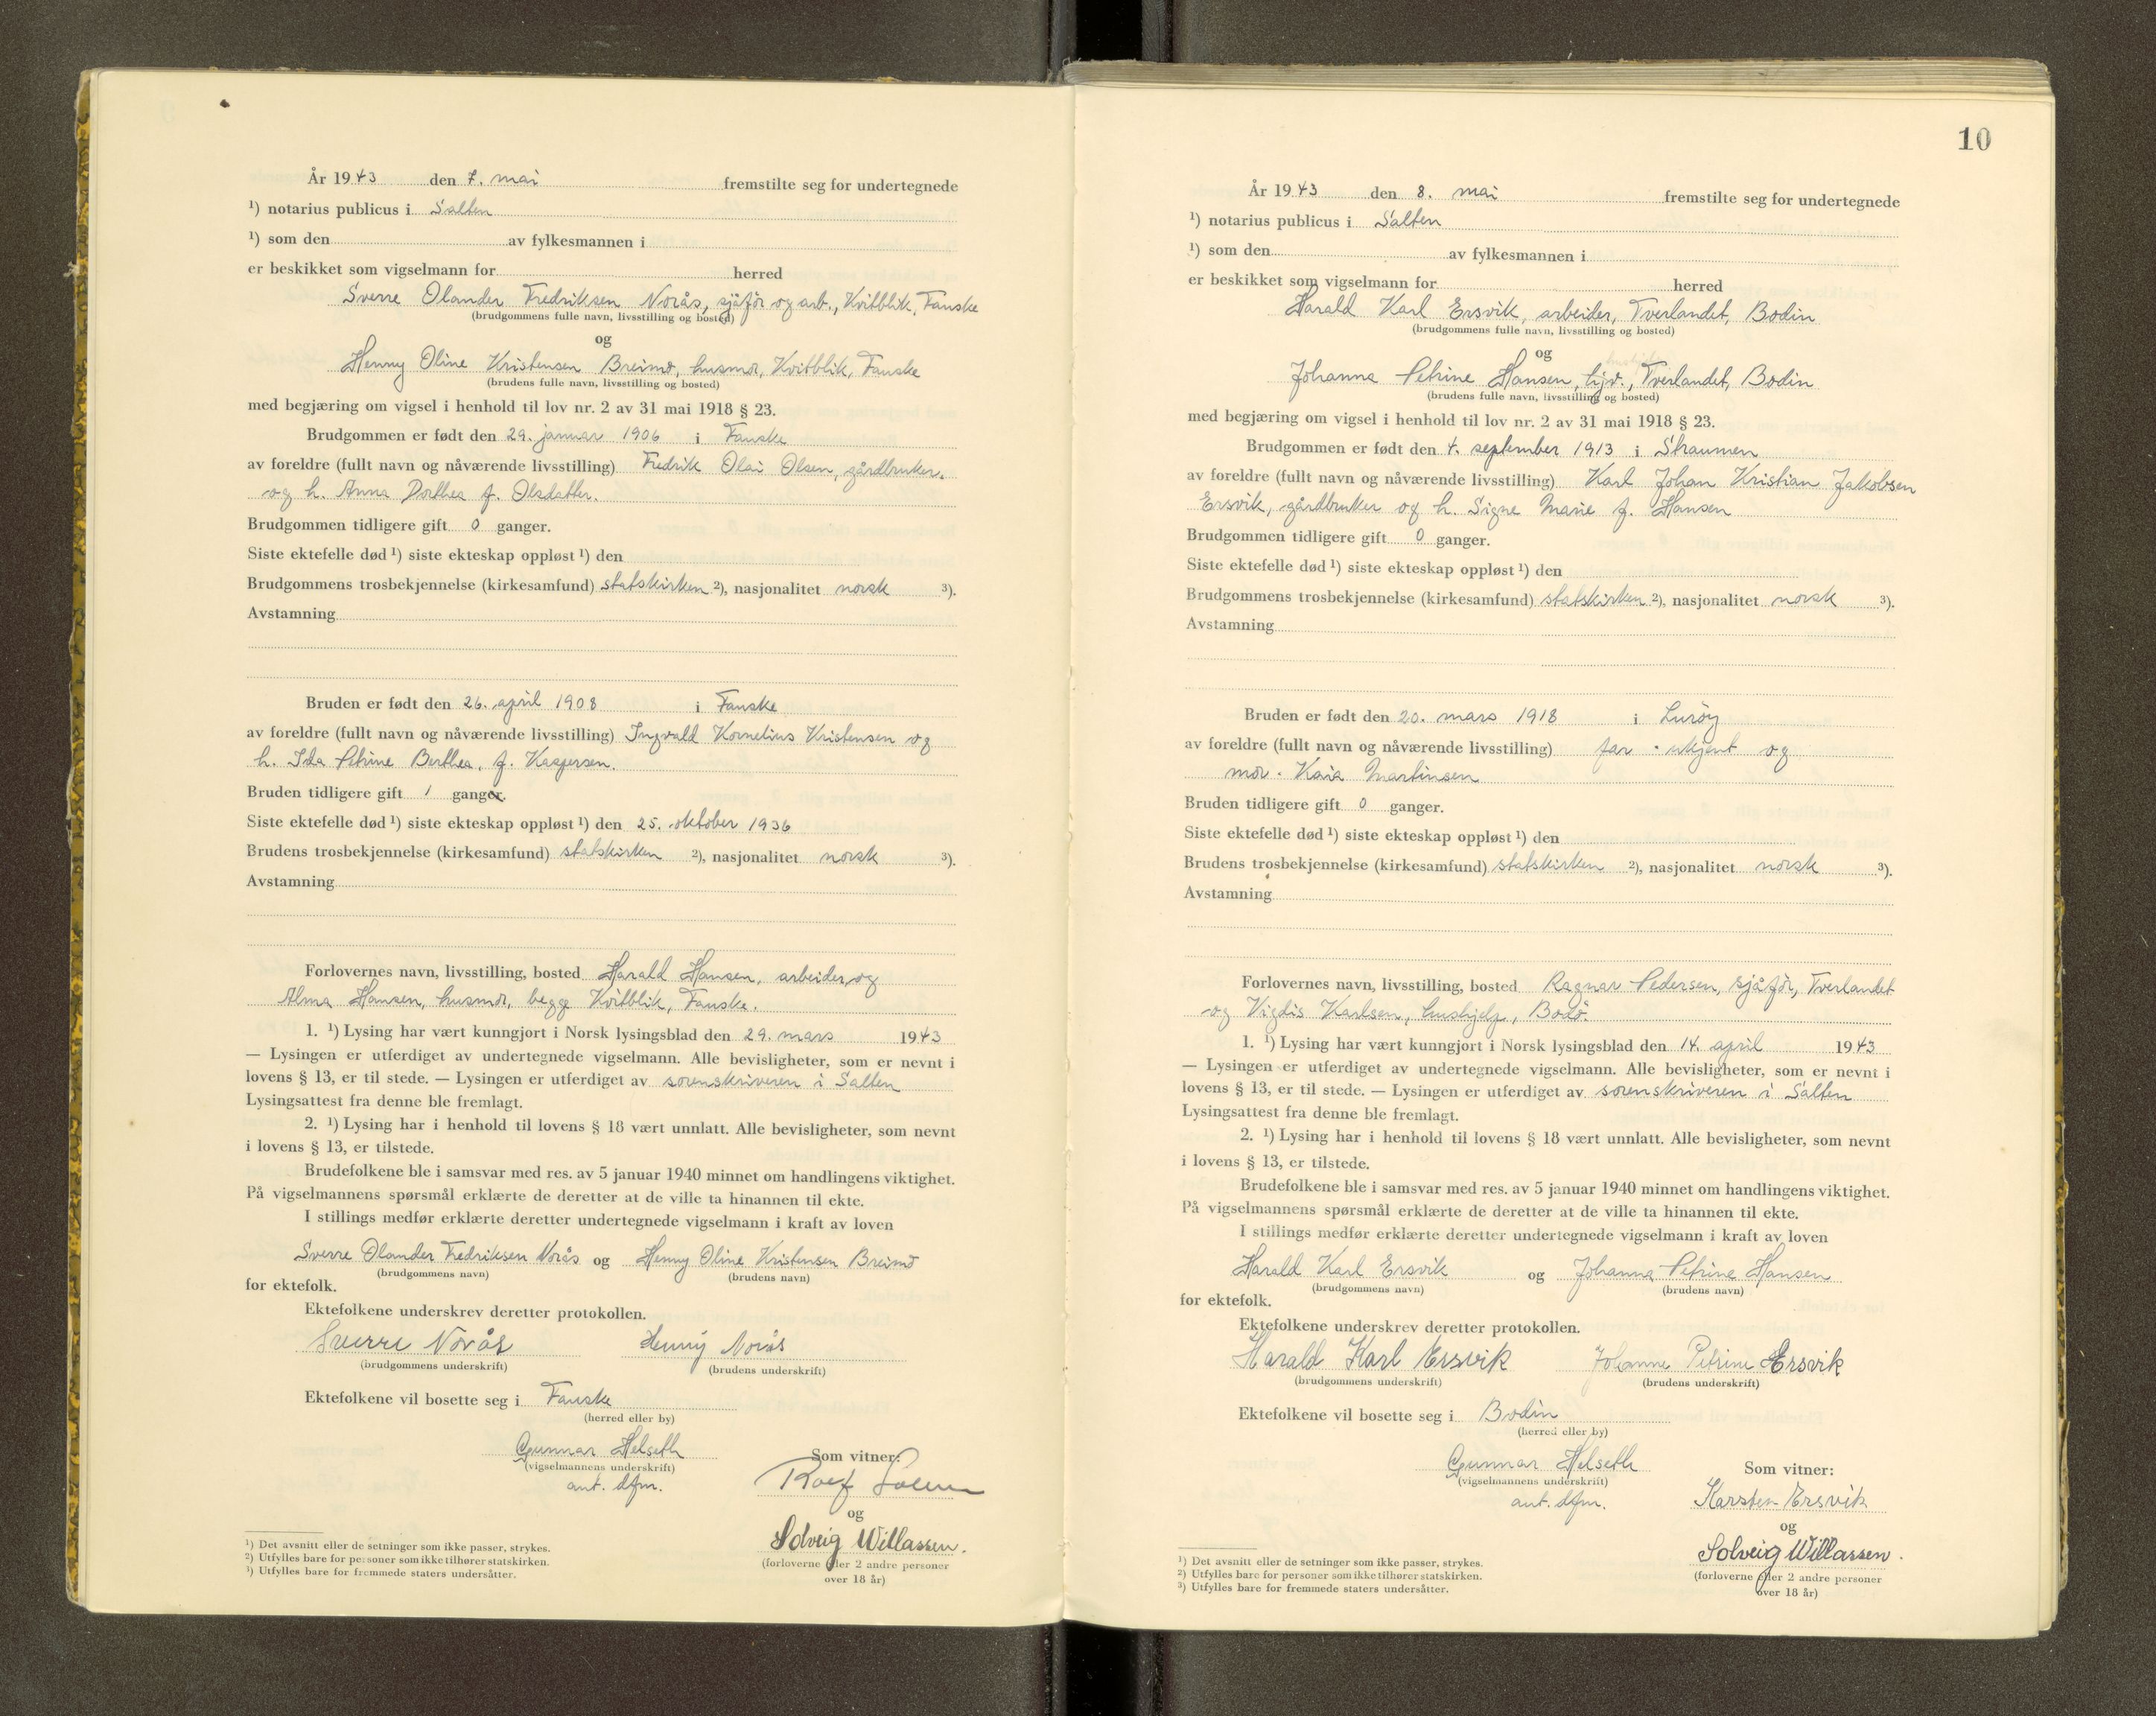 År 1943 den 7. mai fremstilte seg for undertegnede
¹) notarius publicus i Salten
¹) som den av fylkesmannen i
er beskikket som vigselmann for herred
Sverre Olander Fredriksen Norås, sjåfør og arb., Kvitblik, Fauske
(brudgommens fulle navn, livsstilling og bosted)
og
Henny Oline Kristensen Breimo, husmor, Kvitblik, Fauske
(brudens fulle navn, livsstilling og bosted)
med begjæring om vigsel i henhold til lov nr. 2 av 31 mai 1918 § 23.
Brudgommen er født den 29. januar 1906 i Fauske
av foreldre (fullt navn og nåværende livsstilling) Fredrik Olai Olsen, gårdbruker.
og h. Anna Dorthea f. Olsdatter.
Brudgommen tidligere gift 0 ganger.
Siste ektefelle død ¹) siste ekteskap oppløst ¹) den
Brudgommens trosbekjennelse (kirkesamfund) statskirken ²), nasjonalitet norsk ³).
Avstamning
Bruden er født den 26. april 1908 i Fauske
av foreldre (fullt navn og nåværende livsstilling) Ingvald Kornelius Kristensen og
h. Ida Petrine Berthea, f. Kaspersen.
Bruden tidligere gift 1 ganger.
Siste ektefelle død ¹) siste ekteskap oppløst ¹) den 25. oktober 1936
Brudens trosbekjennelse (kirkesamfund) statskirken ²), nasjonalitet norsk ³).
Avstamning
Forlovernes navn, livsstilling, bosted Harald Hansen, arbeider, og
Alma Hansen, husmor, begge Kvitblik, Fauske.
1. ¹) Lysing har vært kunngjort i Norsk lysingsblad den 29. mars 1943
— Lysingen er utferdiget av undertegnede vigselmann. Alle bevisligheter, som er nevnt i
lovens § 13, er til stede. — Lysingen er utferdiget av sorenskriveren i Salten
Lysingsattest fra denne ble fremlagt.
2. ¹) Lysing har i henhold til lovens § 18 vært unnlatt. Alle bevisligheter, som nevnt
i lovens § 13, er tilstede.
Brudefolkene ble i samsvar med res. av 5 januar 1940 minnet om handlingens viktighet.
På vigselmannens spørsmål erklærte de deretter at de ville ta hinannen til ekte.
I stillings medfør erklærte deretter undertegnede vigselmann i kraft av loven
Sverre Olander Fredriksen Norås og Henny Oline Kristensen Breimo
(brudgommens navn) (brudens navn)
for ektefolk.
Ektefolkene underskrev deretter protokollen.
Sverre Norås Henny Norås
(brudgommens underskrift) (brudens underskrift)
Ektefolkene vil bosette seg i Fauske
(herred eller by)
Gunnar Helseth
(vigselmannens underskrift)
aut. dfm.
Som vitner:
og
Solveig Willassen.
(forloverne eller 2 andre personer
over 18 år)
¹) Det avsnitt eller de setninger som ikke passer, strykes.
²) Utfylles bare for personer som ikke tilhører statskirken.
³) Utfylles bare for fremmede staters undersåtter.
10
År 1943 den 8. mai fremstilte seg for undertegnede
¹) notarius publicus i Salten
¹) som den av fylkesmannen i
er beskikket som vigselmann for herred
Harald Karl Ersvik, arbeider, Tverlandet, Bodin
(brudgommens fulle navn, livsstilling og bosted)
og
Johanna Petrine Hansen, hjv., Tverlandet, Bodin
(brudens fulle navn, livsstilling og bosted)
med begjæring om vigsel i henhold til lov nr. 2 av 31 mai 1918 § 23.
Brudgommen er født den 4. september 1913 i Straumen
av foreldre (fullt navn og nåværende livsstilling) Karl Johan Kristian Jakobsen
Ersvik, gårdbruker og h. Signe Marie f. Hansen
Brudgommen tidligere gift 0 ganger.
Siste ektefelle død ¹) siste ekteskap oppløst ¹) den
Brudgommens trosbekjennelse (kirkesamfund) statskirken ²), nasjonalitet norsk ³).
Avstamning
Bruden er født den 20. mars 1918 i Lurøy
av foreldre (fullt navn og nåværende livsstilling) far · ukjent og
mor · Kaia Martinsen
Bruden tidligere gift 0 ganger.
Siste ektefelle død ¹) siste ekteskap oppløst ¹) den
Brudens trosbekjennelse (kirkesamfund) statskirken ²), nasjonalitet norsk ³).
Avstamning
Forlovernes navn, livsstilling, bosted Ragnar Pedersen, sjåfør, Tverlandet
og Vigdis Karlsen, hushjelp, Bodø.
1. ¹) Lysing har vært kunngjort i Norsk lysingsblad den 14. april 1943
— Lysingen er utferdiget av undertegnede vigselmann. Alle bevisligheter, som er nevnt i
lovens § 13, er til stede. — Lysingen er utferdiget av sorenskriveren i Salten
Lysingsattest fra denne ble fremlagt.
2. ¹) Lysing har i henhold til lovens § 18 vært unnlatt. Alle bevisligheter, som nevnt
i lovens § 13, er tilstede.
Brudefolkene ble i samsvar med res. av 5 januar 1940 minnet om handlingens viktighet.
På vigselmannens spørsmål erklærte de deretter at de ville ta hinannen til ekte.
I stillings medfør erklærte deretter undertegnede vigselmann i kraft av loven
Harald Karl Ersvik og Johanna Petrine Hansen
(brudgommens navn) (brudens navn)
for ektefolk.
Ektefolkene underskrev deretter protokollen.
Harald Karl Ersvik Johanne Petrine Ersvik
(brudgommens underskrift) (brudens underskrift)
Ektefolkene vil bosette seg i Bodin
(herred eller by)
Gunnar Helseth
(vigselmannens underskrift)
aut. dfm.
Som vitner:
Karsten Ersvik
og
Solveig Willassen.
(forloverne eller 2 andre personer
over 18 år)
¹) Det avsnitt eller de setninger som ikke passer, strykes.
²) Utfylles bare for personer som ikke tilhører statskirken.
³) Utfylles bare for fremmede staters undersåtter.